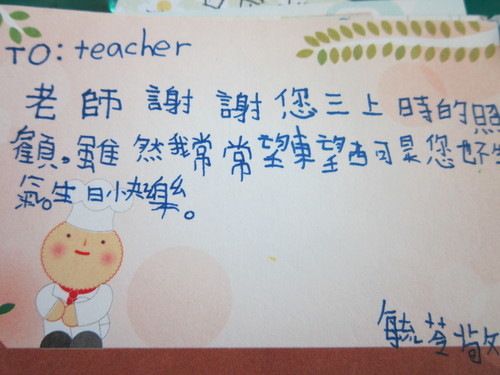 TO: teacher
老師謝謝您三上時的照
顧。雖然我常常望東望西可是您生
氣。生日快樂。
毓荃敬